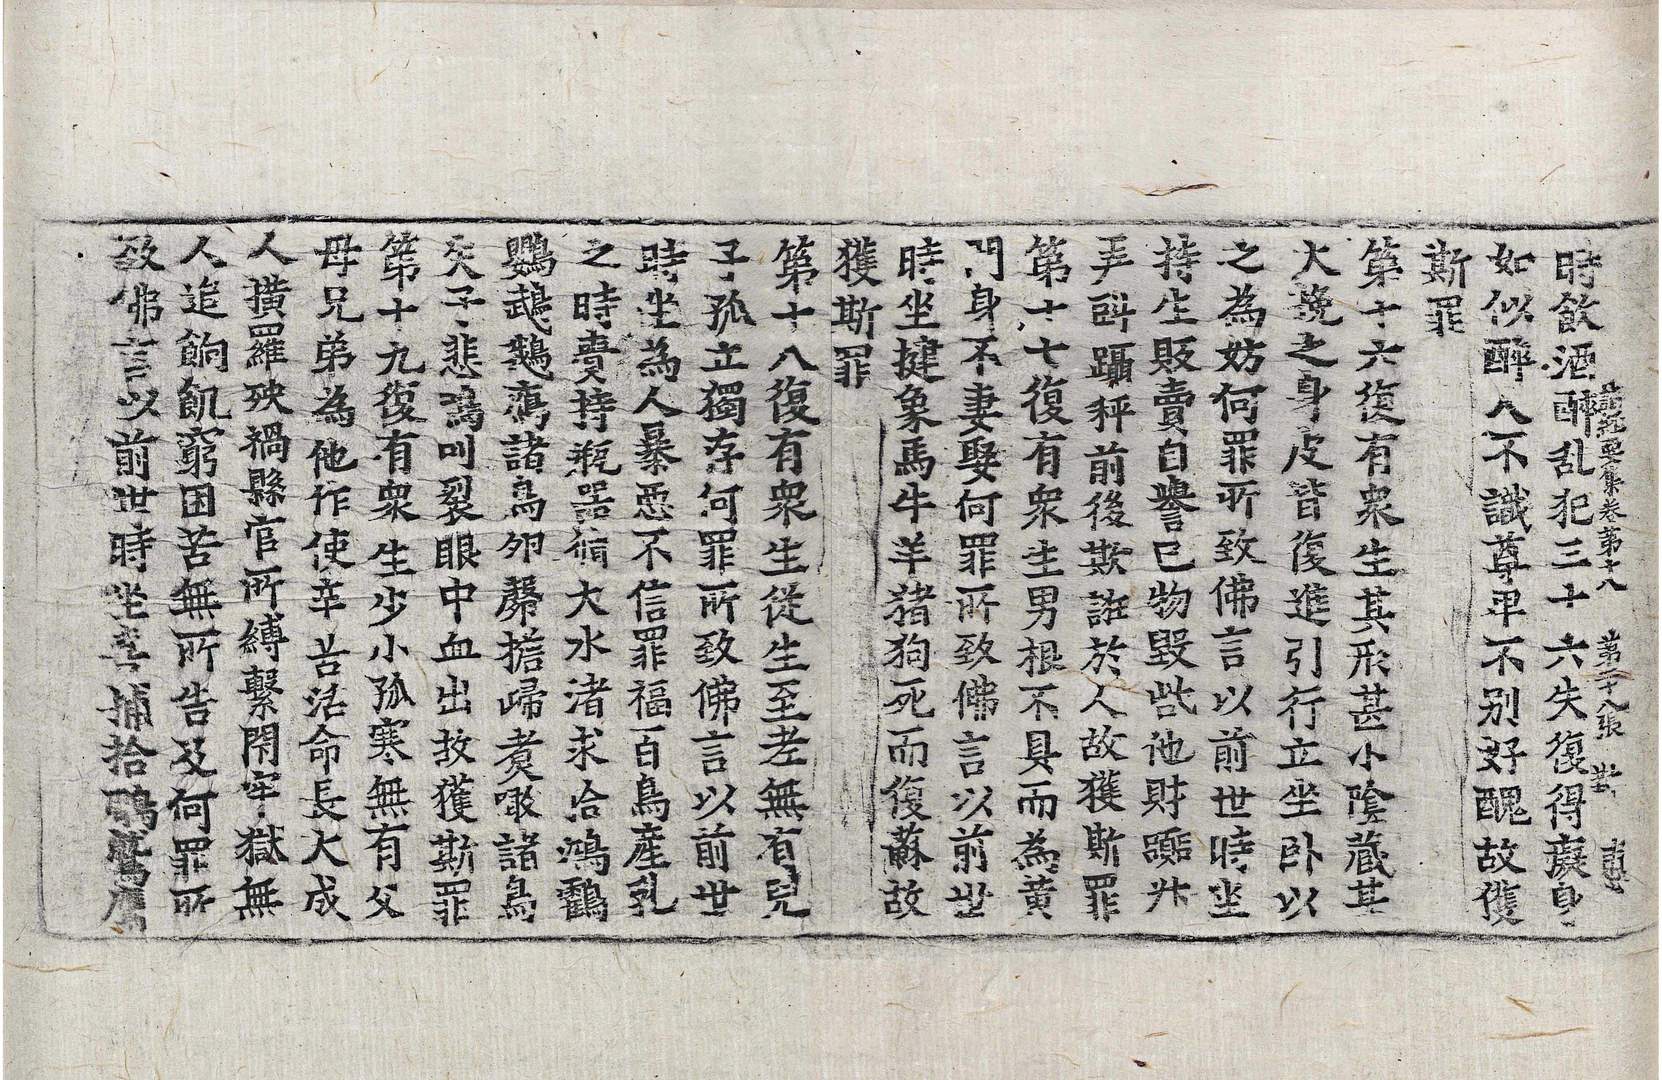 時飲酒醉乱犯三十六失復得癡身
諸經要集卷第十八　第二十八張　對
如似醉人不識尊卑不別好醜故獲
斯罪
第十六復有衆生其形甚小陰藏甚
大挽之身皮皆復進引行立坐卧以
之為妨何罪所致佛言以前世時坐
持生販賣自譽已物毀呰他財蹻升
弄㪷躡秤前後欺誑於人故獲斯罪
第十七復有衆生男根不具而為黄
門身不妻娶何罪所致佛言以前世
時坐揵象馬牛羊猪狗死而復蘇故
獲斯罪
第十八復有衆生従生至老無有兒
子孤立獨存何罪所致佛言以前世
時坐為人暴惡不信罪福百鳥產乳
之時賷持瓶器循大水渚求合鴻鸛
鸚鵡鵝鴈諸鳥卵㢑擔歸煑噉諸鳥
失子悲鳴叫裂眼中血出故獲斯罪
第十九復有衆生少小孤寒無有父
母兄弟為他作使辛苦活命長大成
人擴羅殃禍縣官所縛繫閉牢獄無
人追餉飢窮困苦無所告及何罪所
致佛言以前世時坐喜捕拾鵰鷲鷹